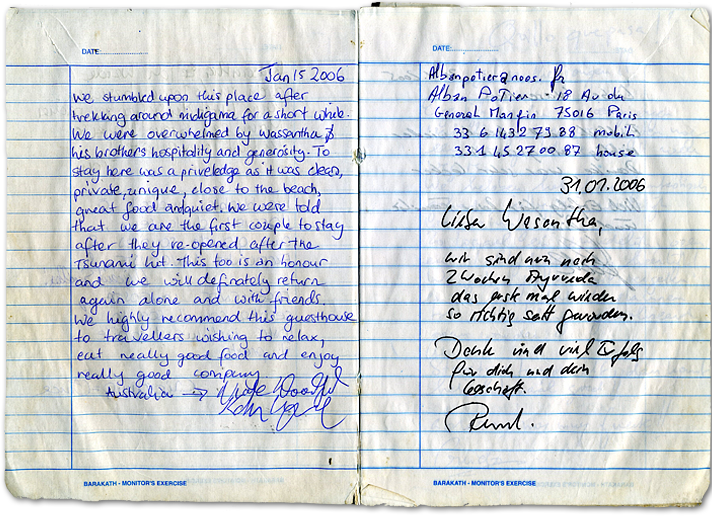 DATE:
Jan 15 2006
we stumbled upon this place after
trekking around midigama for a short while.
We were overwhelmed by wassantha &
his brothers hospitality and generosity. To
stay here was a priveledge as it was clean,
private, unique, close to the beach,
great food and quiet. We were told
that we are the first couple to stay
after they re-opened after the
Tsunami hit. This too is an honour
and we will definately return
again alone and with friends.
We highly recommend this guesthouse
to travellers wishing to relax,
eat really good food and enjoy
really good company.
Australia →
BARAKATH - MONITOR'S EXERCISE
DATE:
Albanpotier@noos.fr
Alban Potier. 18 Av du
General Mangin 75016 Paris
33 6 1432 79 38 mobil
33 1 45 27 00 87 house
31.01.2006
Lieber Wasantha,
wir sind nun nach
2 Wochen Ayurveda
das erste mal wieder
so richtig satt geworden.
Dank und viel Erfolg
für dich und dein
Geschäft.
BARAKATH - MONITOR'S EXERCISE